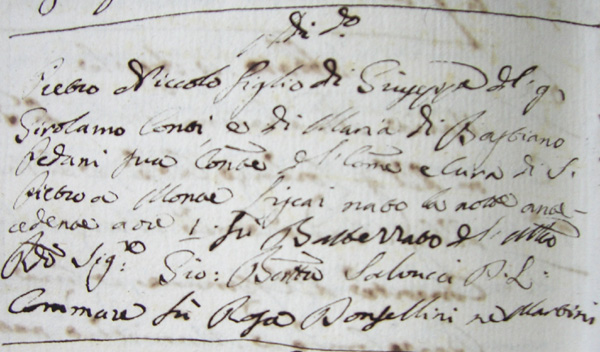 di do
Pietro Niccolo figlio di Giuseppe del q
Girolamo Conti, e di Maria di Bastiano
Pedani sua Conte del Come e Cura di S.
Pietro a Monte nato la notte ante-
cedente a ore 1. fu Battezzato dal
Rdo Sigre Gio: Batta Salvucci P. L.
Commare fù Rosa Bonsellini ne Martini